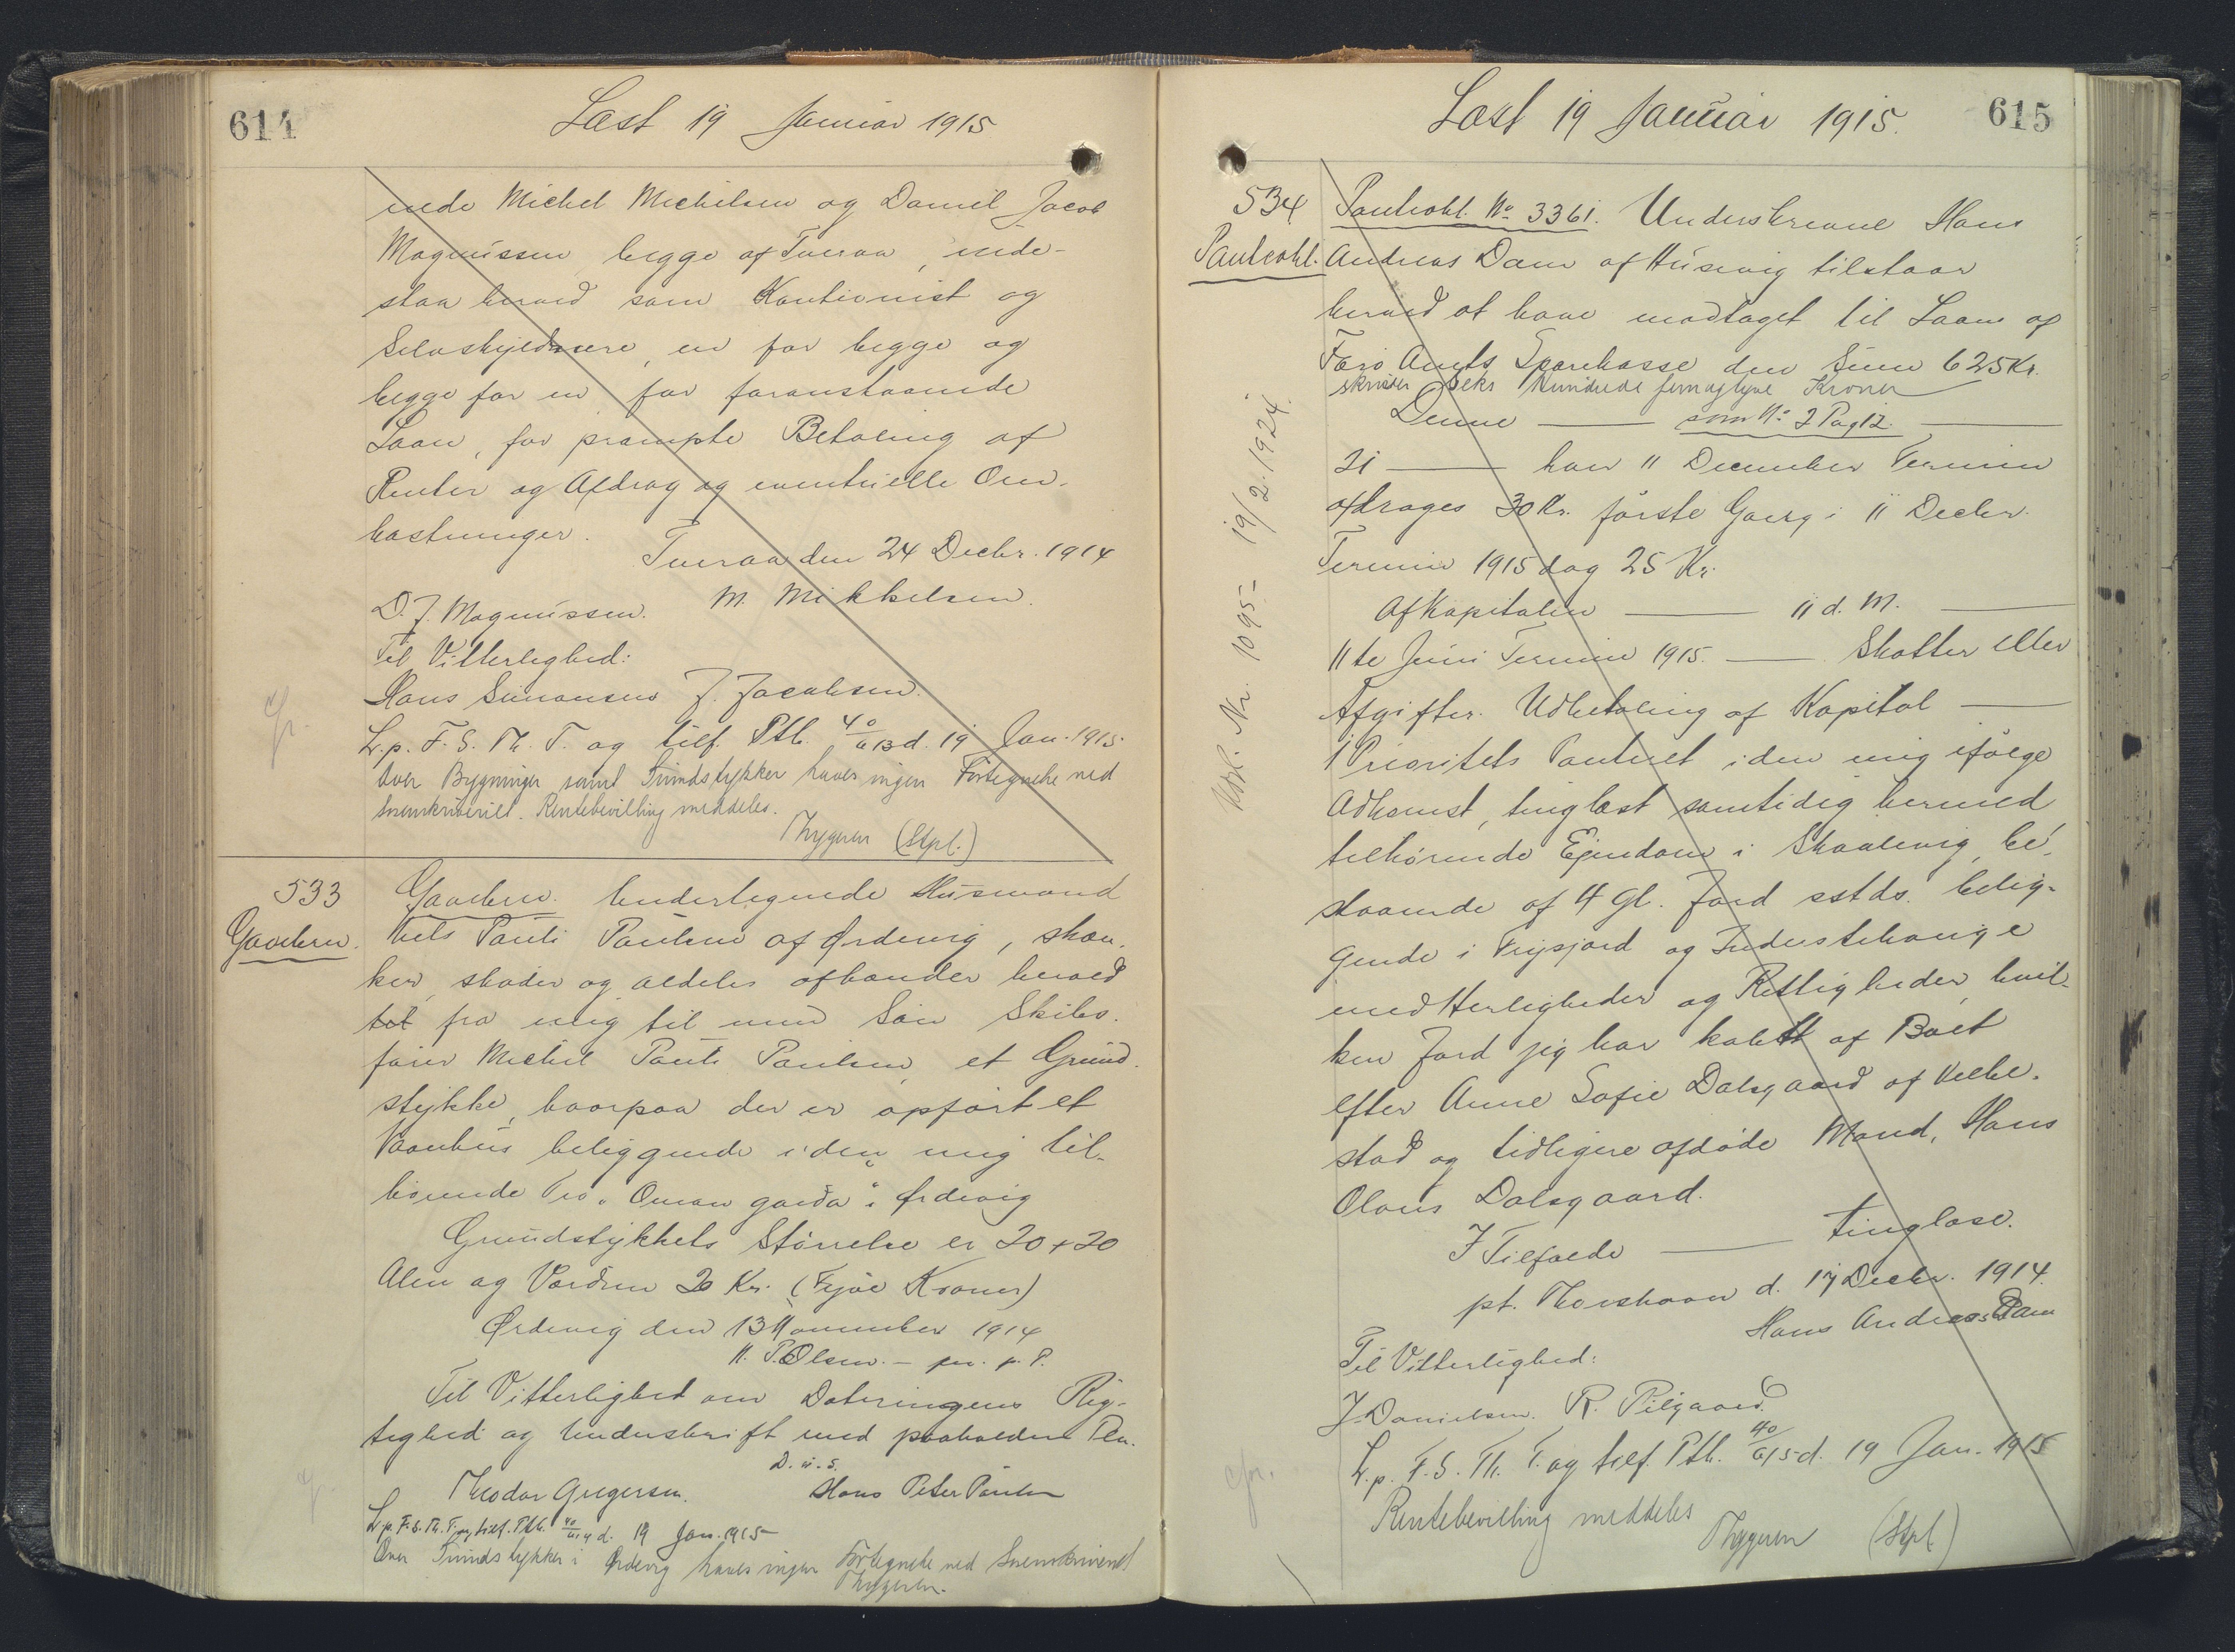 614
Læst 19 Januar 1915
nede Michel Michelsen og Daniel Jacob
Magnussen, begge af Tveraa, inde-
staa herved som Kautionist og
Selvskyldnere, en for begge og
begge for en for foranstaaende
Laan, for prompte Betaling af
Renter og Afdrag og eventuelle Om-
kostninger.
Tveraa den 24 Decbr. 1914
D. J. Magnussen. M. Mikkelsen.
Til Vitterlighed:
Hans Simonsen J. Jacobsen.
L. p. F. S. Th. T. og tilf. Ptb. 40/613 d. 19 Jan. 1915
Over Bygninger samt Grundstykker haves ingen Fortegnelse ved
Sorenskriveriet. Rentebevilling meddeles.
Thygesen (Stpl.)
533
Gavebrev.
Gavebrev. Undertegnede Husmand
Niels Pauli Poulsen af Ørdevig, skæn-
ker, skøder og aldeles afhænder herved
til fra mig til min Søn Skibs-
fører Michel Pauli Poulsen, et Grund-
stykke, hvorpaa der er opført et
Vaanhus beliggende i den mig til-
hørende Trø "Oman garda" i Ørdevig
Grundstykkets Størrelse er 20 + 20
Alen og Værdien 20 Kr. (Tyve Kroner)
Ørdevig den 13 November 1914
N. P. Olsen. – m. p. P.
Til Vitterlighed om Dateringens Rig-
tighed og Underskrift med paaholden Pen.
D. u. s.
Theodor Gregersen. Hans Peter Poulsen
L. p. F. S. Th. T. og tilf. Ptb. 40/614 d. 19 Jan. 1915
Over Grundstykker i Ørdevig haves ingen Fortegnelse ved Sorenskriveriet
Thygesen.
Læst 19 Januar 1915.
615
534
Panteobl.
Panteobl. No 3361. Underskrevne Hans
Andreas Dam af Húsevig tilstaar
herved at have modtaget til Laans af
Færø Amts Sparekasse den Sum 625 Kr.
skriver Seks Hundrede femogtyve Kroner
Denne — som No 2 Pag 12. —
21 — hver 11 December Termin
afdrages 30 Kr. første Gang i 11 Decbr.
Termin 1915 dog 25 Kr.
Af Kapitalen — 11 d. M. —
11te Juni Termin 1915. — Skatter eller
Afgifter. Udbetaling af Kapital —
1 Prioritets Panteret i den mig ifølge
Adkomst, tinglæst samtidig hermed,
tilhørende Ejendom i Skaalevig, be-
staaende af 4 Gl. Jord sstds. belig-
gende i
og
med Herligheder og Rettigheder, hvil-
ken Jord jeg har købt af Boet
efter Anne Sofie Dalsgaard af Velbe-
stad og tidligere afdøde Mand, Hans
Olaus Dalsgaard.
I Tilfælde — tinglæse.
pt. Thorshavn d. 17 Decbr. 1914.
Hans Andreas Dam
Til Vitterlighed:
J. Danielsen. R. Pilgaard.
L. p. F. S. Th. T. og tilf. Ptb. 40/615 d. 19 Jan. 1915
Rentebevilling meddeles
Thygesen (Stpl.)
Kvl. Nr. 1095 – 19/2.1924.